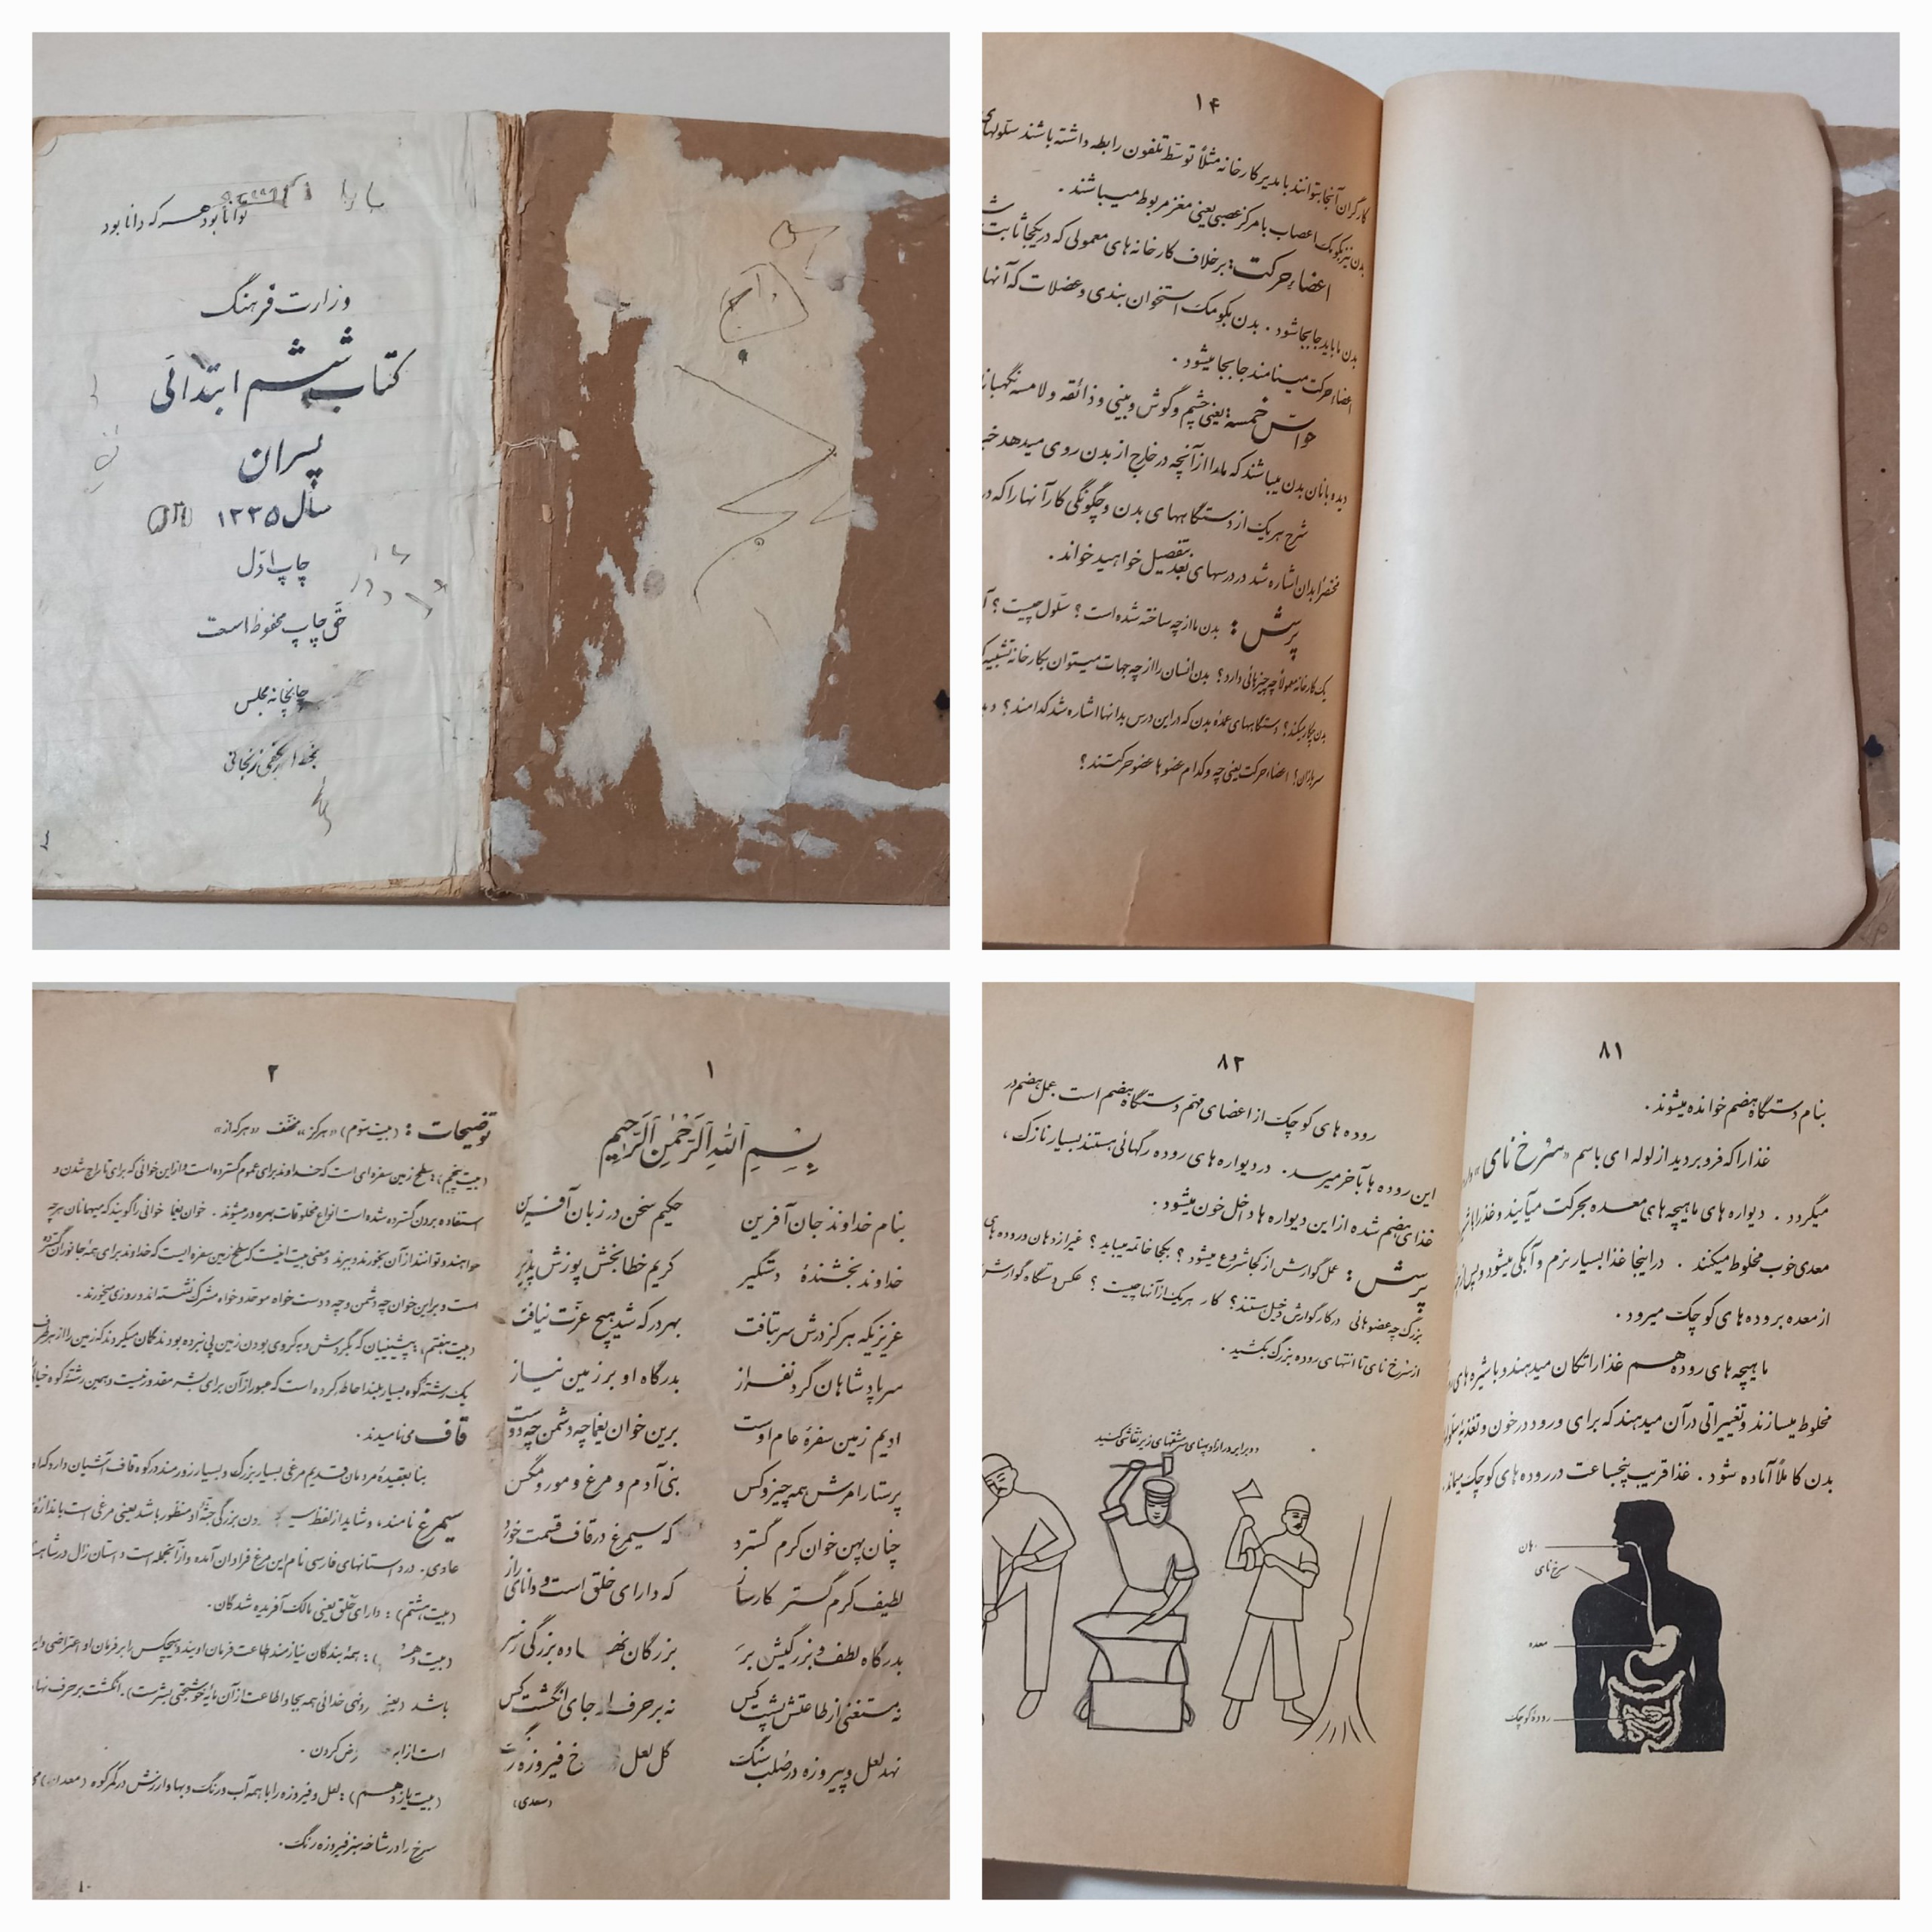 توانا بود هر که دانا بود
وزارت فرهنگ
کتاب ششم ابتدائی
پسران
سال ۱۳۳۵
چاپ اول
حق چاپ محفوظ است
چاپخانه مجلس
بخط ارتقمی زنجانی
۱۴
کارگران آنجا بتوانند با مدیر کارخانه مثلاً توسط تلفون رابطه داشته باشند سلولهای
بدن نیز بکومک اعصاب با مرکز عصبی یعنی مغز مربوط میباشند .
اعضاء حرکت : برخلاف کارخانه های معمولی که در یکجا ثابت
بدن ما باید جابجا شود . بدن بکومک استخوان بندی و عضلات که آنها
اعضاء حرکت مینامند جابجا میشود .
حواس خمسه : یعنی چشم و گوش و بینی و ذائقه و لامسه نگهبانان
دیده بانان بدن میباشند که ما را از آنچه در خارج از بدن روی میدهد
شرح هر یک از دستگاههای بدن و چگونگی کار آنها را که در
مختصراً بدان اشاره شد در درسهای بعد بتفصیل خواهید خواند .
پرسش : بدن ما از چه ساخته شده است ؟ سلول چیست ؟
یک کارخانه معمولاً چه چیزهائی دارد ؟ بدن انسان را از چه جهات میتوان بکارخانه تشبیه
بدن چکار میکند ؟ دستگاههای عمده بدن که در این درس بدانها اشاره شد کدامند ؟
اعضاء حرکت یعنی چه و کدام عضوها عضو حرکتند ؟
۱
بِسْمِ اللهِ الرَّحْمٰنِ الرَّحِیمِ
بنام خداوند جان آفرین حکیم سخن در زبان آفرین
خداوند بخشندهٔ دستگیر کریم خطا بخش پوزش پذیر
عزیزیکه هر کز درش سر بتافت بهر در که شد هیچ عزت نیافت
سر پادشاهان گردنفراز بدرگاه او بر زمین نیاز
ادیم زمین سفرهٔ عام اوست برین خوان یغما چه دشمن چه دوست
پرستار امرش همه چیز و کس بنی آدم و مرغ و مور و مگس
چنان پهن خوان کرم گسترد که سیمرغ در قاف قسمت خورد
لطیف کرم گستر کارساز که دارای خلق است و دانای راز
بدرگاه لطف و بزرگیش بر بزرگان نهاده بزرگی ز سر
نه مستغنی از طاعتش پشت کس نه بر حرف او جای انگشت کس
نهد لعل و پیروزه در صلب سنگ گل لعل خ فیروزه رنگ
(سعدی)
۲
توضیحات : (بیت سوم) «هر کز» مخفف «هر که از»
(بیت پنجم) : سطح زمین سفره ای است که خداوند برای عموم گسترده است و از این خوانی که برای تاراج شدن و
استفاده بردن گسترده شده است انواع مخلوقات بهره ور میشوند . خوان یغما خوانی را گویند که میهمانان هر چه
خواهند و توانند از آن بخورند و ببرند و معنی بیت اینست که سطح زمین سفره ایست که خداوند برای همه جانوران گسترده
است و بر این خوان چه دشمن و چه دوست خواه موحد و خواه مشرک نشسته اند و روزی میخورند .
(بیت هفتم) : پیشینیان که بگردش و بکروی بودن زمین پی نبرده بودند گمان میکردند که زمین را از هر طرف
یک رشته کوه بسیار بلند احاطه کرده است که عبور از آن برای بشر مقدور نیست و همین رشته کوه
قاف می نامیدند .
بنا بعقیدهٔ مردمان قدیم مرغی بسیار بزرگ و بسیار زورمند در کوه قاف آشیان دارد که او را
سیمرغ نامند ، و شاید از لفظ دن بزرگی جثهٔ او منظور باشد یعنی مرغی است باندازهٔ
عادی . در داستانهای فارسی نام این مرغ فراوان آمده و از آنجمله است داستان زال در
(بیت هشتم) : دارای خلق یعنی مالک آفریده شدگان .
: همهٔ بندگان نیازمند اطاعت فرمان اویند و هیچکس را بر فرمان او اعتراضی
باشد انگشت بر حرف
است از رض کردن .
(بیت یازدهم) : لعل و فیروزه را با همه آب و رنگ و بها و ارزش در کمر کوه (معدن)
سرخ را در شاخه سبز فیروزه رنگ .
۱۰
۸۱
بنام دستگاه هضم خوانده میشوند .
غذا را که فرو بردید از لوله ای باسم «سرخ نای»
میگردد . دیواره های ماهیچه های معده بحرکت میآیند و غذا را با
معدی خوب مخلوط میکنند . در اینجا غذا بسیار نرم و آبکی میشود و پس از
از معده بروده های کوچک میرود .
ماهیچه های روده هم غذا را تکان میدهند و با شیره های
مخلوط میسازند و تغییراتی در آن میدهند که برای ورود در خون و تغذیه
بدن کاملاً آماده شود . غذا قریب پنجساعت در روده های کوچک میماند
دهان
سرخ نای
معده
رودهٔ کوچک
۸۲
روده های کوچک از اعضای مهم دستگاه هضم است عمل هضم در
این روده ها بآخر میرسد . در دیواره های روده رگهائی هستند بسیار نازک ،
غذای هضم شده از این دیواره ها داخل خون میشود .
پرسش : عمل گوارش از کجا شروع میشود ؟ بکجا خاتمه مییابد ؟ غیر از دهان و روده های
بزرگ چه عضوهائی در کار گوارش دخیل هستند ؟ کار هر یک از آنها چیست ؟ عکس دستگاه گوارش
از سرخ نای تا انتهای روده بزرگ بکشید .
دو برابر درازا و پهنای سرمشقهای زیر نقاشی کنید